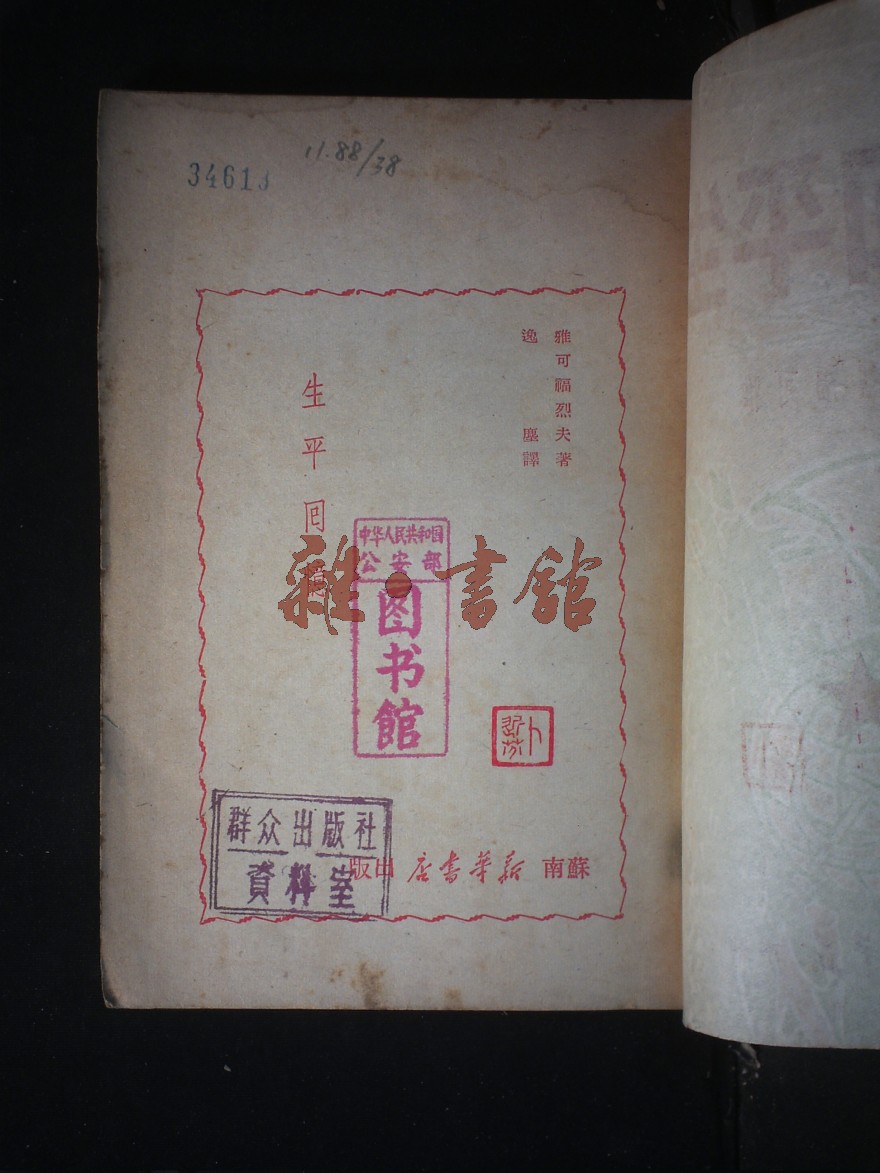 34613
11.88/38
雅可福烈夫著
逸塵譯
生平回憶
中华人民共和国
公安部
图书馆
雜·書館
群众出版社
資料室
蘇南新华書店出版